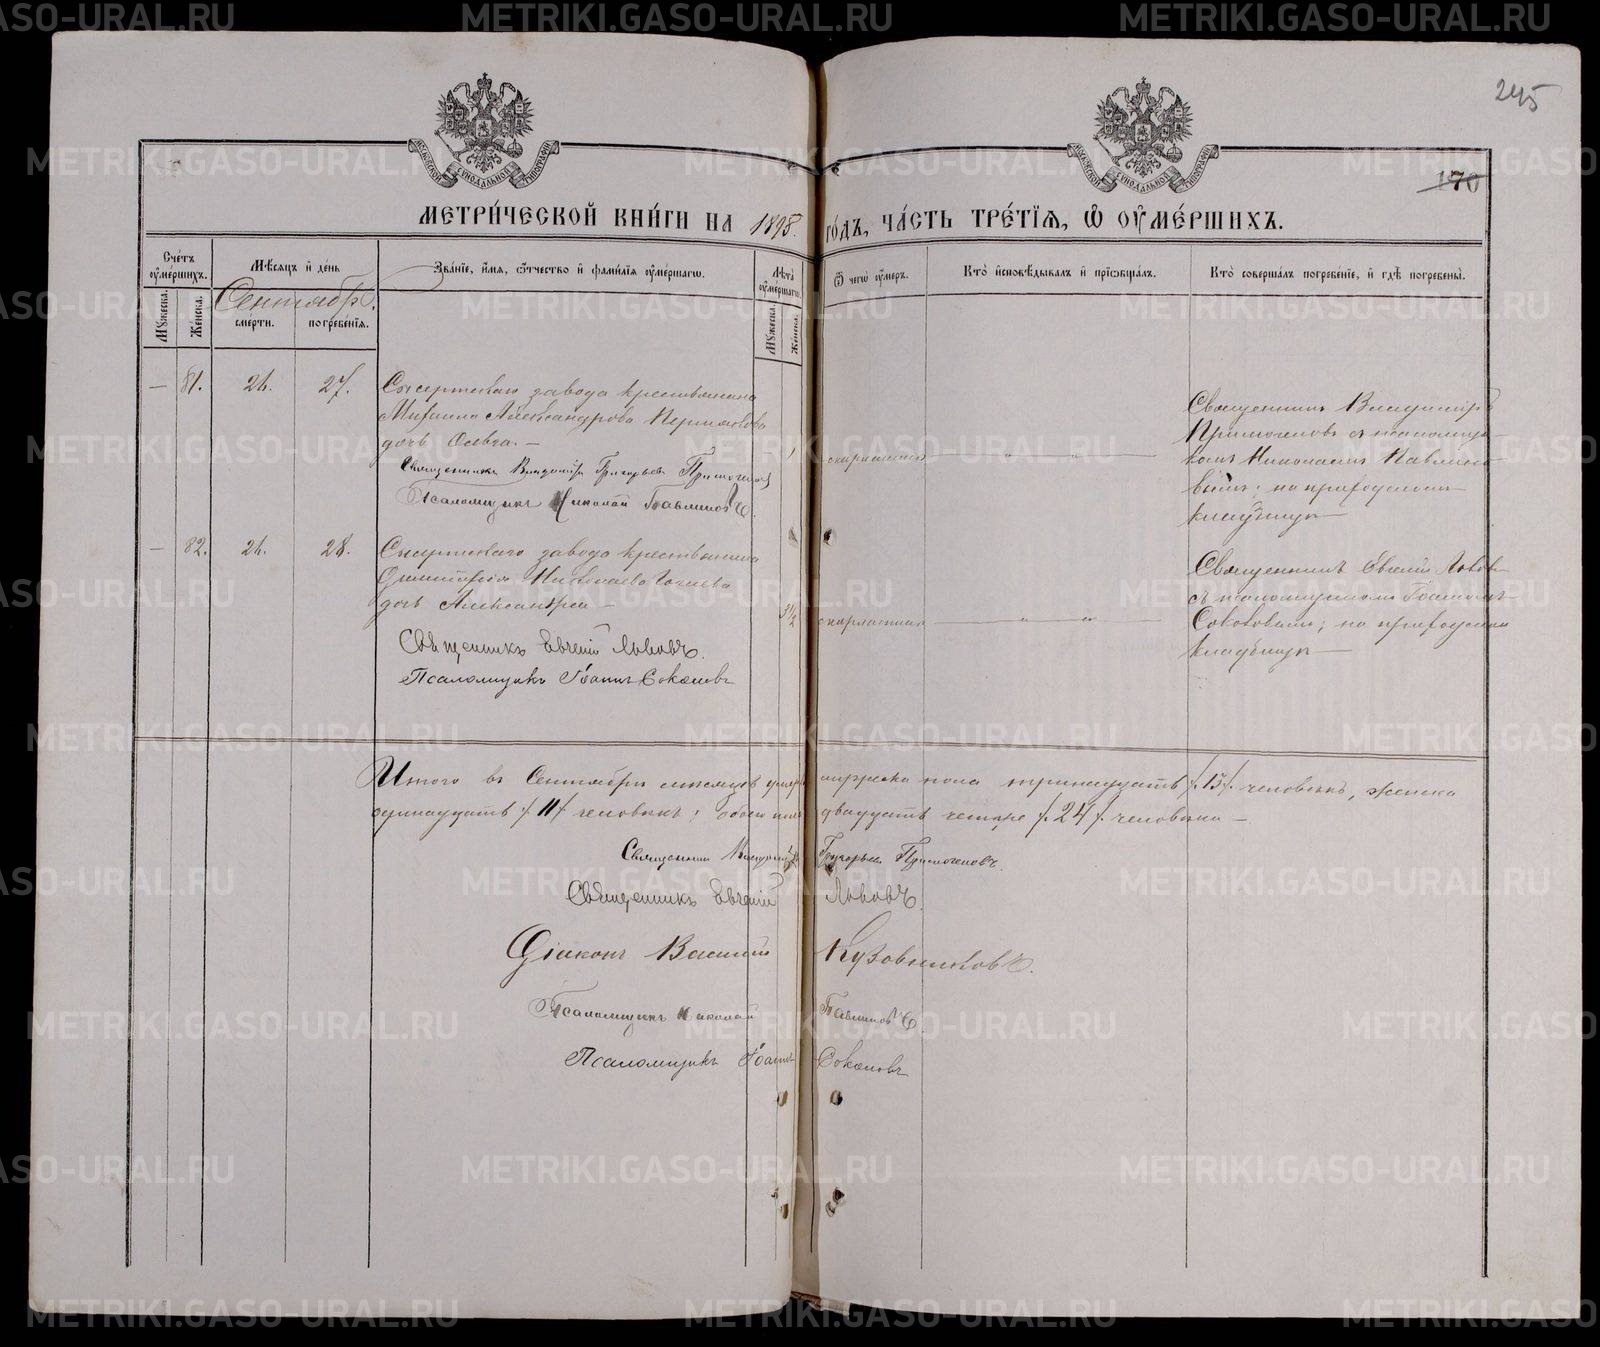 245
170
МОСКОВСКОЙ СѴНОДАЛЬНОЙ ТИПОГРАФІИ
МОСКОВСКОЙ СѴНОДАЛЬНОЙ ТИПОГРАФІИ
МЕТРИ́ЧЕСКОЙ КНИ́ГИ НА 1898. ГО́ДЪ, ЧА́СТЬ ТРЕ́ТІѦ, Ѡ҆ ОУ҆МЕ́РШИХЪ.
Сче́тъ оу҆ме́ршихъ.
Мꙋжеска.
Же́нска.
Мѣ́сѧцъ и҆ де́нь
Сентябрь.
сме́рти.
погребе́нїѧ.
Зва́нїе, и҆́мѧ, ѻ҆́тчество и҆ фами́лїѧ оу҆ме́ршагѡ.
Лѣ́та оу҆ме́ршагѡ.
Мꙋжеска.
Же́нска.
Ѿ чегѡ̀ оу҆́меръ.
Кто̀ и҆сповѣ́дывалъ и҆ прїѡбща́лъ.
Кто̀ соверша́лъ погребе́нїе, и҆ гдѣ̀ погребены̀.
— 81. 26. 27.
Сысертскаго завода крестьянина
Михаила Александрова Пермякова
дочь Ольга. —
Священникъ Владиміръ Григорьевъ Примогеновъ
Псаломщикъ Николай Павлиновъ.
1
скарлатина — " — " —
Священникъ Владиміръ
Примогеновъ съ псаломщи-
комъ Николаемъ Павлино-
вымъ; на приходскомъ
кладбищѣ —
— 82. 26. 28.
Сысертскаго завода крестьянина
Димитрія Николаева
дочь Александра —
Священникъ Евгеній Львовъ.
Псаломщикъ Іоаннъ Соколовъ
3 1/2
скарлатина — " — " —
Священникъ Евгеній Львовъ
съ псаломщикомъ Іоанномъ
Соколовымъ; на приходскомъ
кладбищѣ —
Итого въ Сентябрѣ мѣсяцѣ умерло мужеска пола тринадцать /13/ человѣкъ, женска
одинадцать /11/ человѣкъ; обоего пола двадцать четыре /24/ человѣка —
Священникъ Владиміръ Григорьевъ Примогеновъ.
Священникъ Евгеній Львовъ.
Діаконъ Василій Кузовниковъ.
Псаломщикъ Николай Павлиновъ.
Псаломщикъ Іоаннъ Соколовъ
METRIKI.GASO-URAL.RU